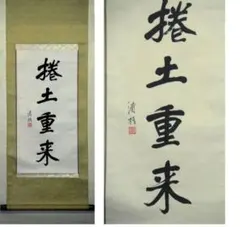 捲土重来
捲土重来